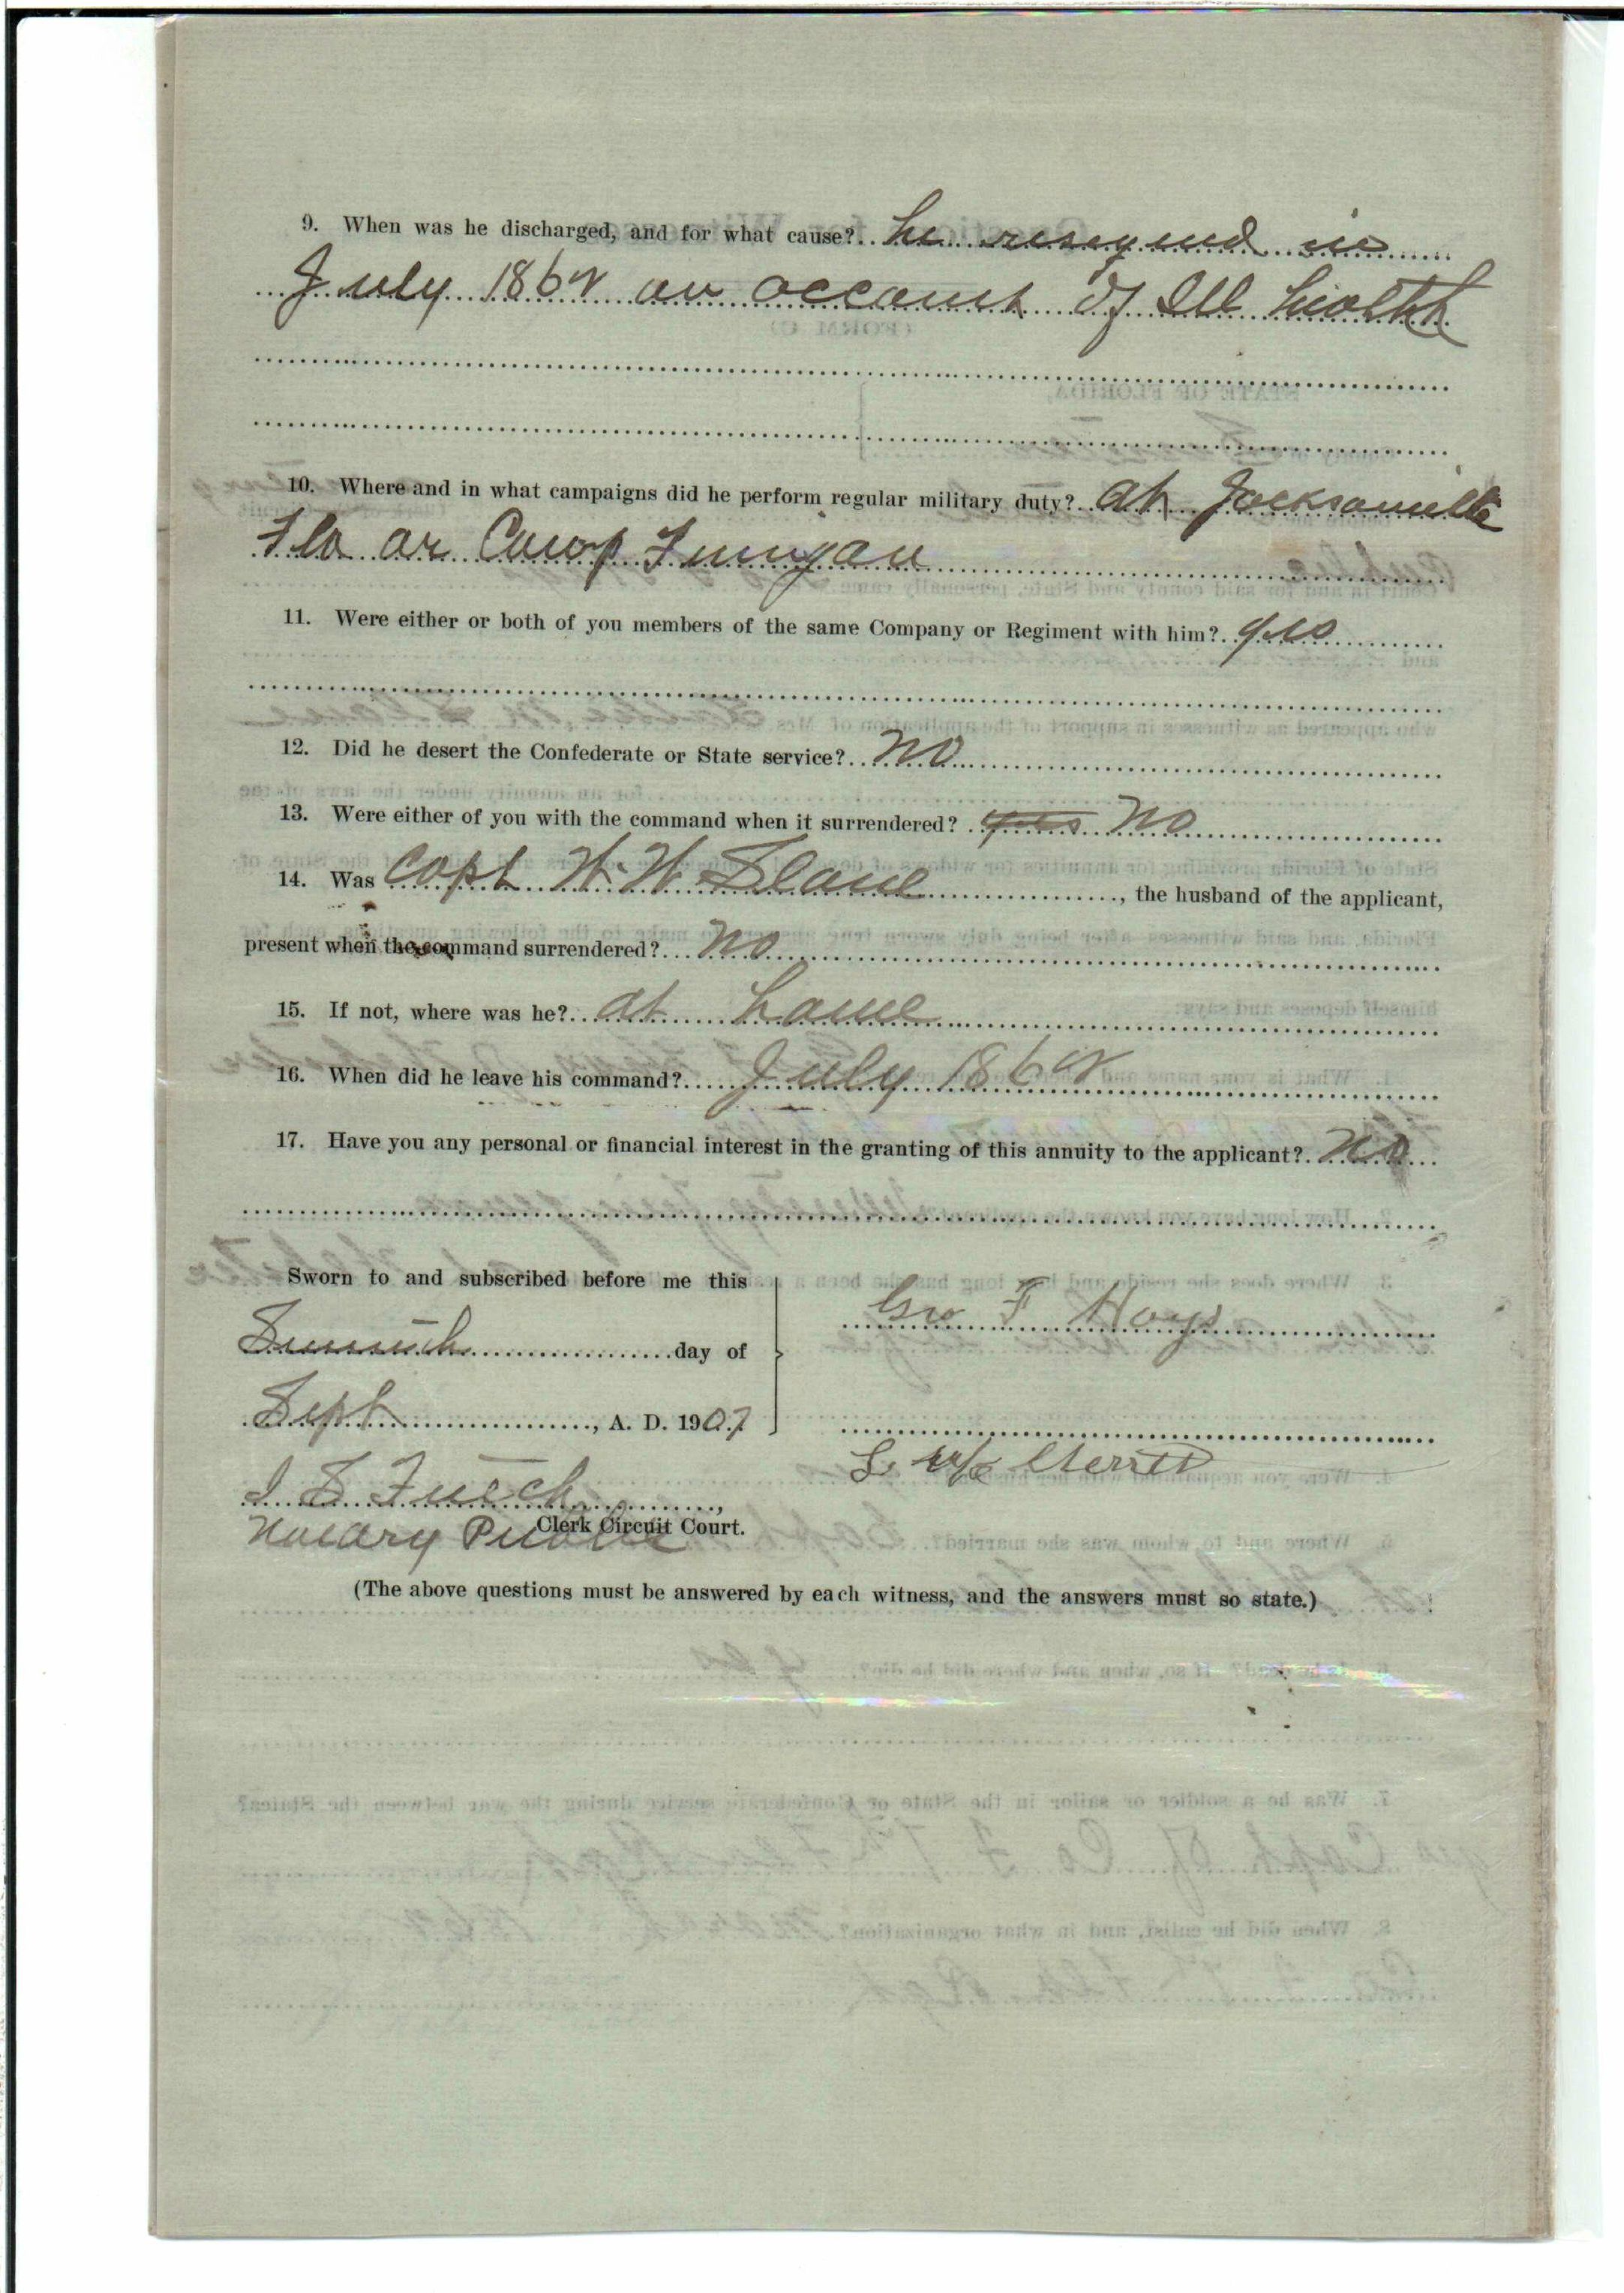 9. When was he discharged, and for what cause? he resigned in
July 1862 on account of Ill health
10. Where and in what campaigns did he perform regular military duty? at Jacksonville
Fla or Camp Finnigan
11. Were either or both of you members of the same Company or Regiment with him? yes
12. Did he desert the Confederate or State service? no
13. Were either of you with the command when it surrendered? yes no
14. Was Capt W. W. Sloane, the husband of the applicant,
present when the command surrendered? no
15. If not, where was he? at home
16. When did he leave his command? July 1862
17. Have you any personal or financial interest in the granting of this annuity to the applicant? no
Sworn to and subscribed before me this
day of
Geo F Hays
Sept, A. D. 1907
S. Mc
I S Futch,
Clerk Circuit Court.
Notary Public
(The above questions must be answered by each witness, and the answers must so state.)